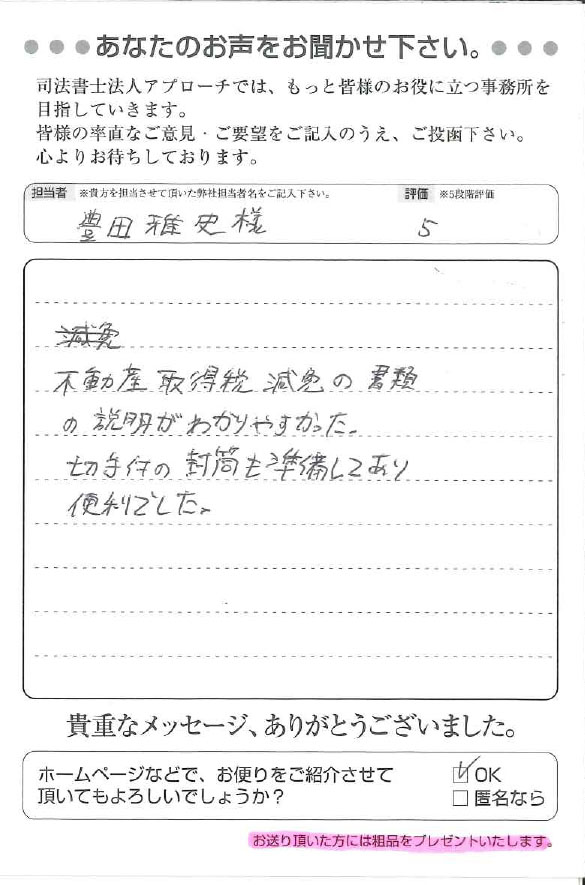 ●●●あなたのお声をお聞かせ下さい。●●●
司法書士法人アプローチでは、もっと皆様のお役に立つ事務所を
目指していきます。
皆様の率直なご意見・ご要望をご記入のうえ、ご投函下さい。
心よりお待ちしております。
担当者 ※貴方を担当させて頂いた弊社担当者名をご記入下さい。 評価 ※5段階評価
豊田雅史様 5
減免
不動産取得税減免の書類
の説明がわかりやすかった。
切手付の封筒も準備してあり
便利でした。
貴重なメッセージ、ありがとうございました。
ホームページなどで、お便りをご紹介させて
頂いてもよろしいでしょうか?
☑ OK
□ 匿名なら
お送り頂いた方には粗品をプレゼントいたします。